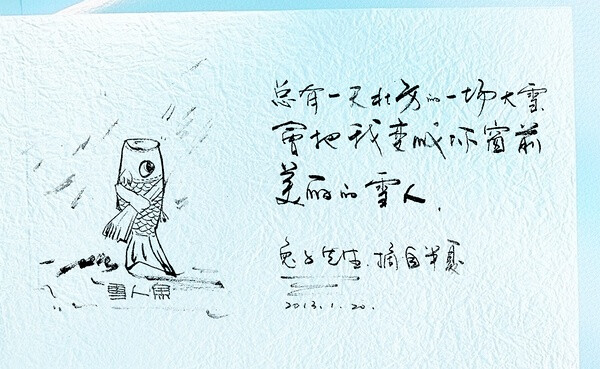 总有一天北方的一场大雪
会把我变成你窗前
美丽的雪人.
兔子先生.摘自半夏
2013.1.20.
雪人鱼